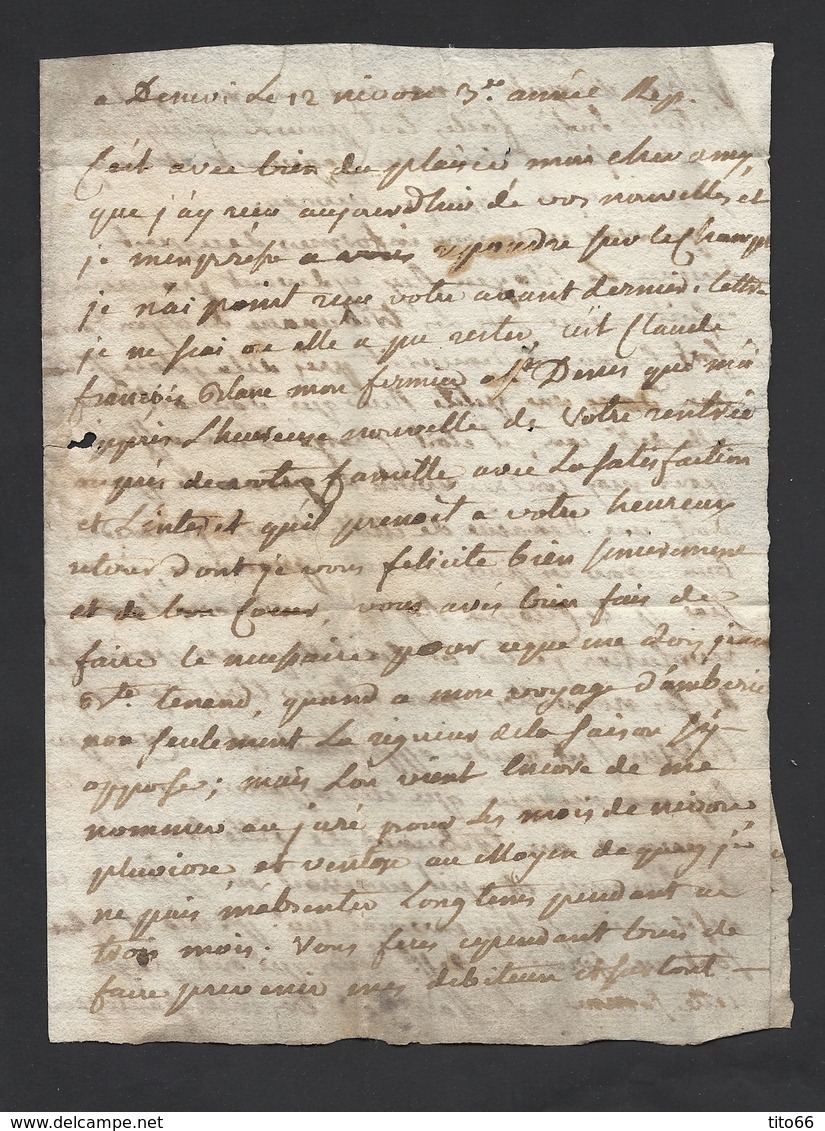 a Denevi Le 12 nivose 3.e année Rep.
C'est avec bien du plaisir mon cher amy,
que j'ay reçu aujourdhui de vos nouvelles et
je m'enpresse a vous repondre sur le champt
je n'ai point reçu votre avant derniere lettre
je ne sai ou elle a pu rester, c'est Claude
françois mon fermier a St. Denes que m'a
appris L'heureuse nouvelle de Votre rentrée
aupres de votre famille avec La satisfaction
et L'interet qu'il prenoit a votre heureux
retour dont je vous felicite bien sincerement
et de bon Coeur, vous avés bien fais de
faire le necessaire pour ceque me dois jean
Bte. tenand, quand a mon voyage d'amberic
non seulement La rigueur de la saison s'y
oppose; mais L'on vient Encore de me
nommer au juré pour Les mois de nivose
pluviose et ventose au Moyen de quoy je
ne puis m'absenter Longtems pendant ce
trois mois; Vous feres cependant bien de
faire prevenir mes debiteur et surtout
tito66